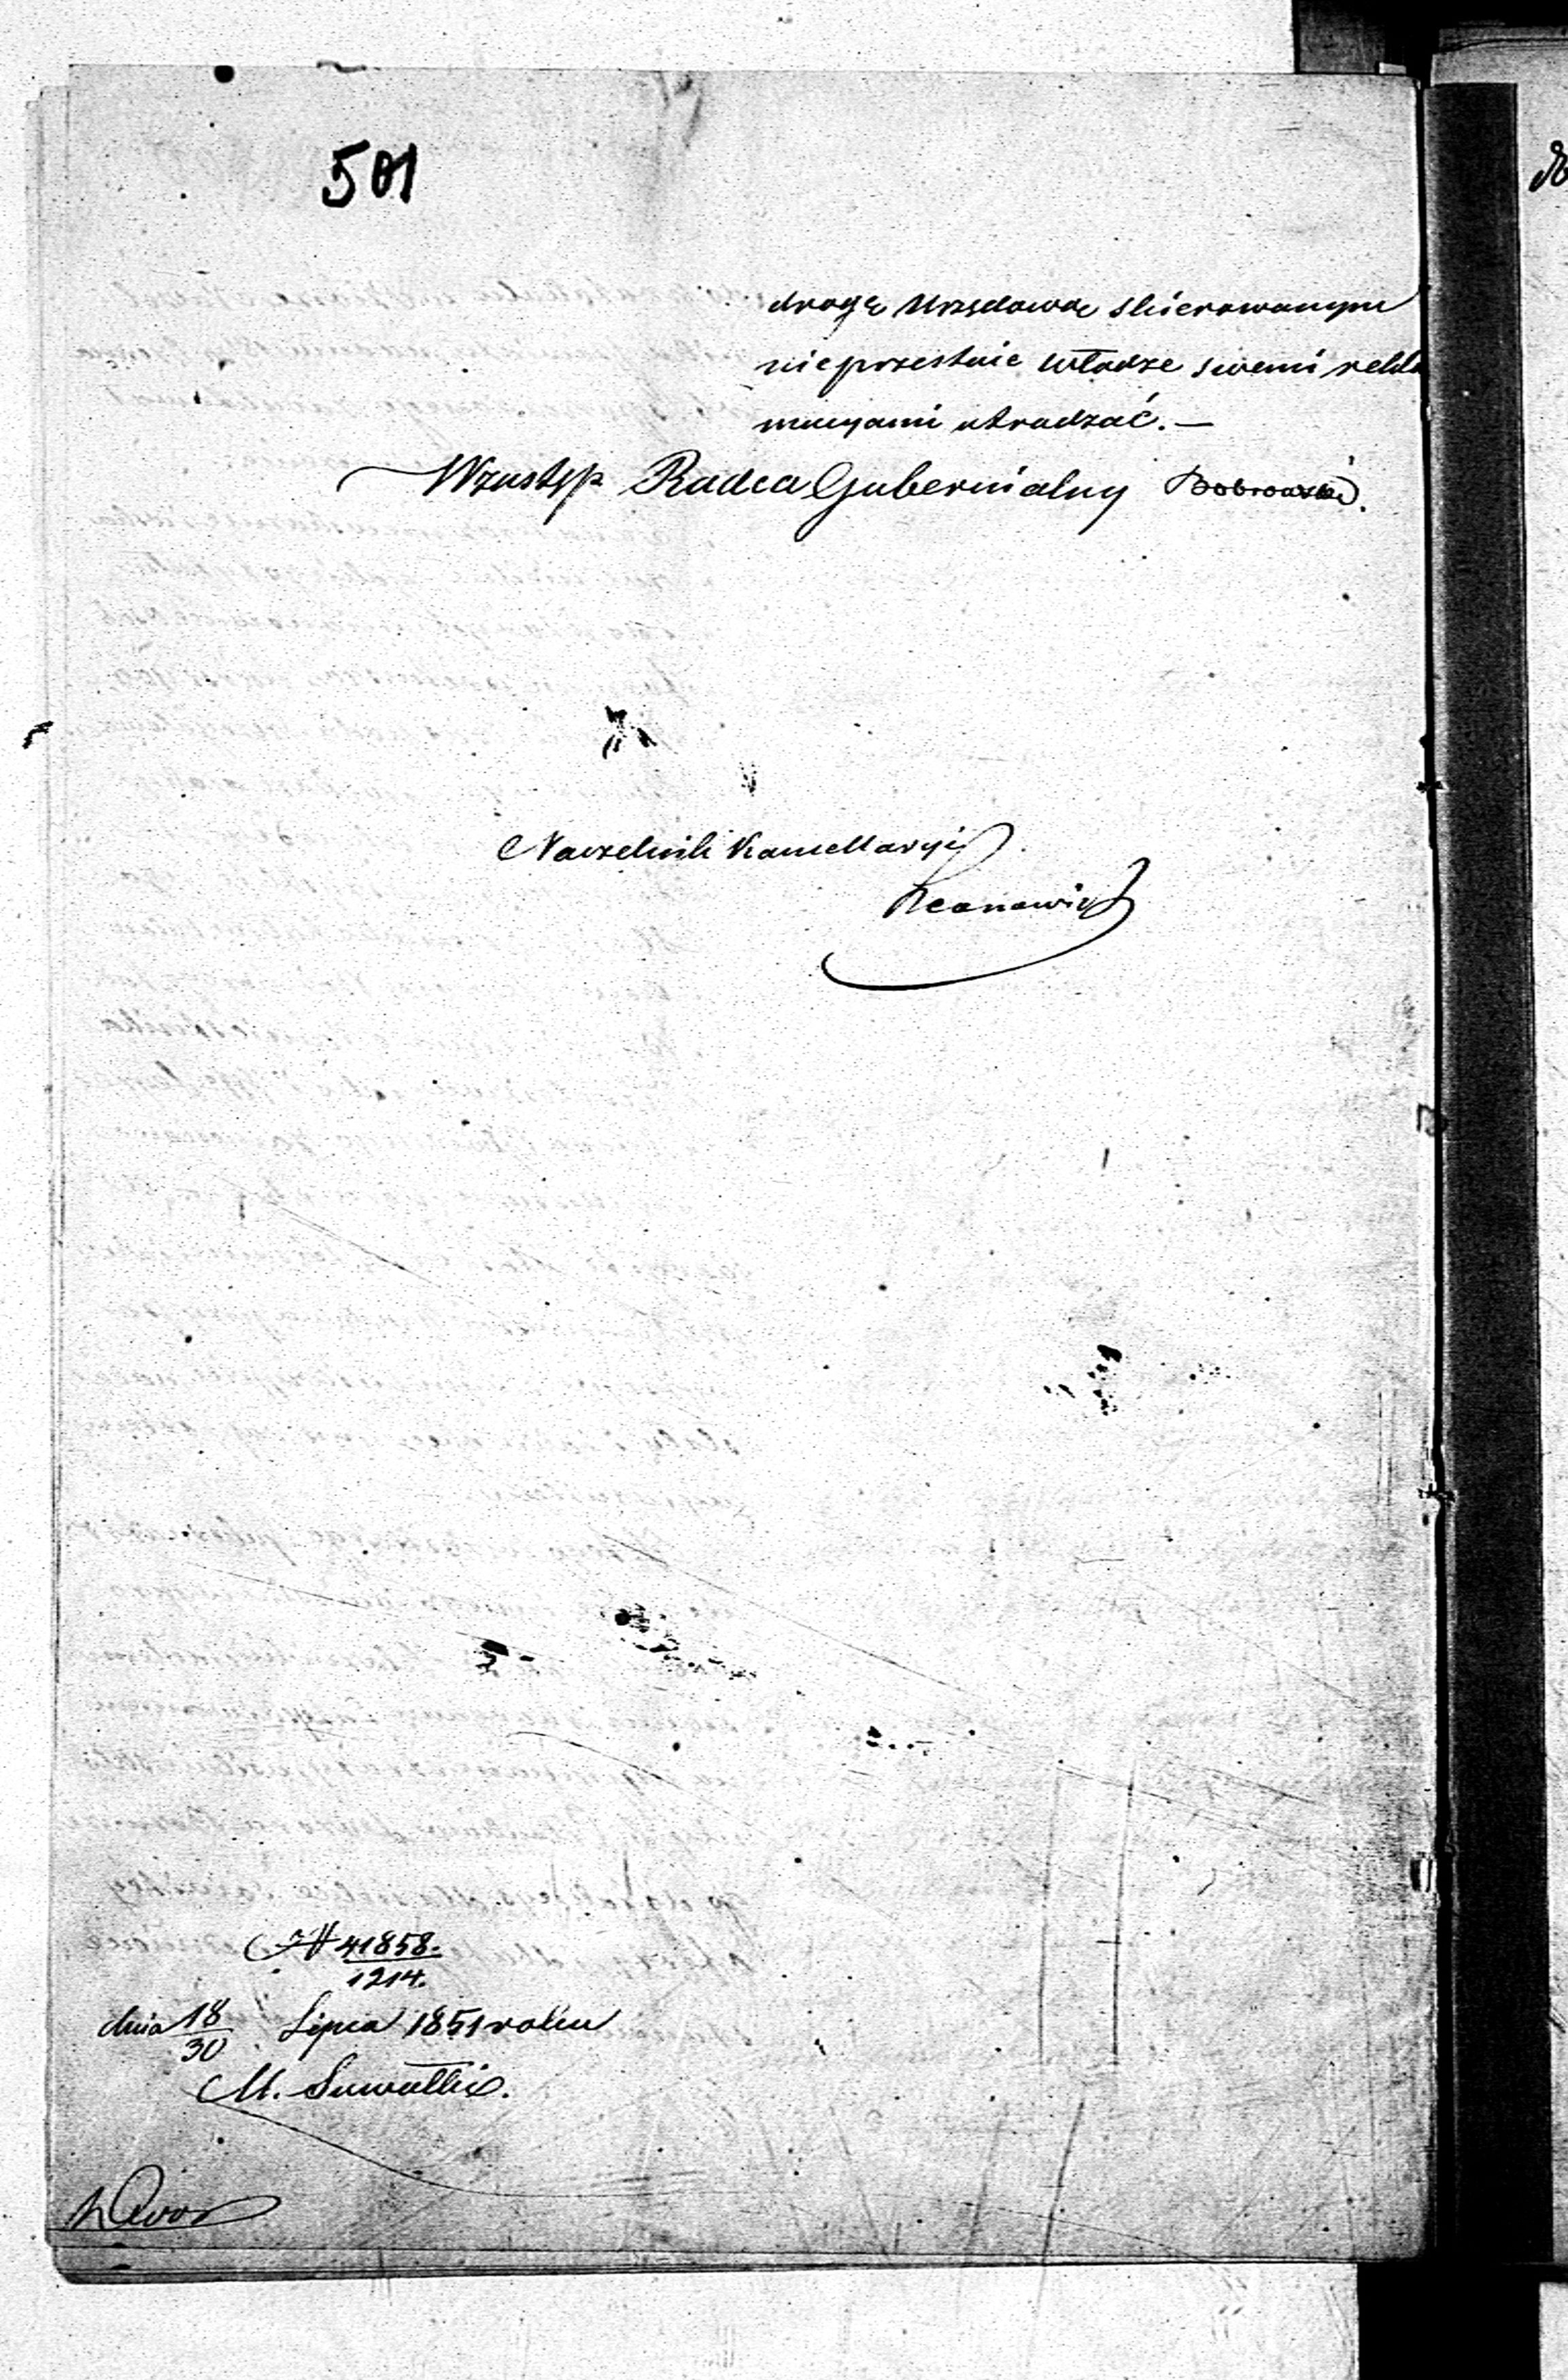 501
drogę Urzędową skierowanym
nieprzestaie Władze swemi rekla
macyami utrudzać.—
W zastęp Radca Gubernialny Bobrowski.
Naczelnik Kancellaryi
N 41858.
1214.
dnia 18/30 Lipca 1851 roku
M. Suwałki.